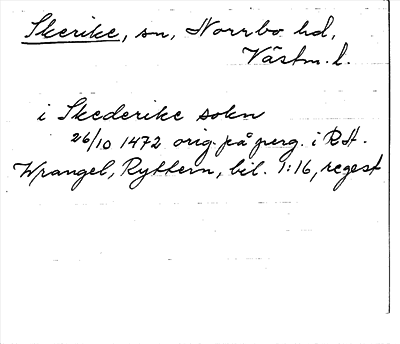 Skerike, sn, Norrbo hd,
Västm. l.
i Skederike sokn
26/10 1472 orig. på perg. i RA.
Wrangel, Ryttern, bil. 1:16, regest